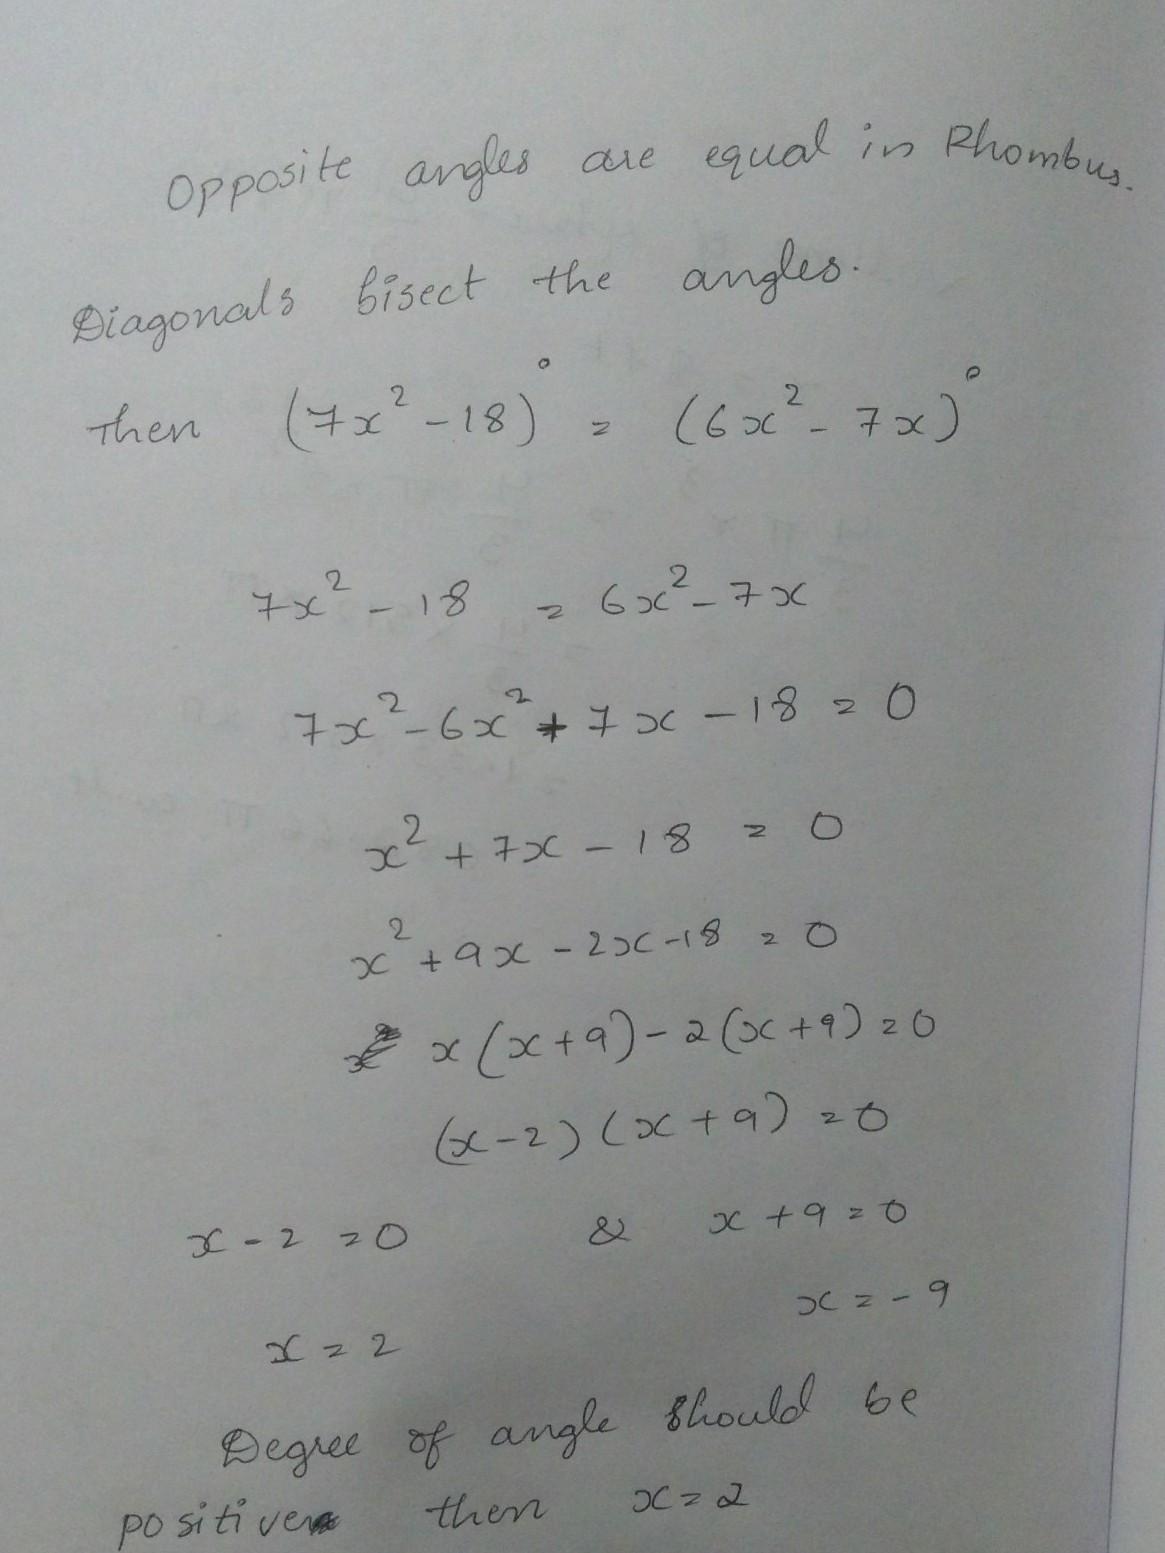 Opposite angles are equal in Rhombus.
Diagonals bisect the angles.
then (7x² - 18)° = (6x² - 7x)°
7x² - 18 = 6x² - 7x
7x² - 6x² + 7x - 18 = 0
x² + 7x - 18 = 0
x² + 9x - 2x - 18 = 0
x(x+9) - 2(x+9) = 0
(x-2)(x+9) = 0
x - 2 = 0 & x + 9 = 0
x = -9
x = 2
Degree of angle should be
positive then x = 2